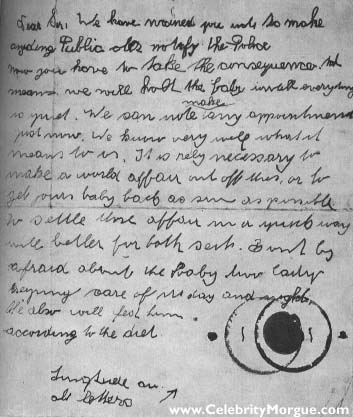 Dear Sir: We have warned you note to make
anyding Public also notify the Police
now you have to take the consequences. ths
means we will holt the baby untill everyting
is quiet. We can note make any appointment
just now. We know very well what it
means to us. It is rely necessary to
make a world affair out off this, or to
get yours baby back as sun as possible
to settle those affair in a quick way
will better for both seits. Dont by
afraid about the baby two lady
keeping care of its day and night.
We also will feed him
according to the diet.
Singtuere on
all letters
www.CelebrityMorgue.com